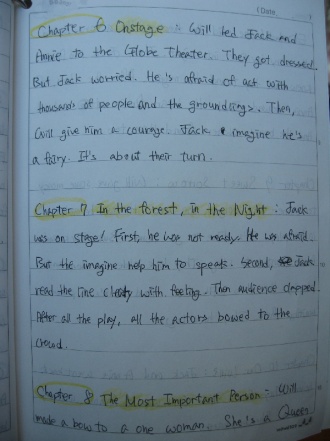 (Date
Chapter 6 Onstage : Will led Jack and
Annie to the Globe Theater. They got dressed
But Jack worried. He's afraid of act with
thousands of people and the groundlings. Then,
Will give him a courage. Jack imagine he's
a fairy. It's about their turn.
Chapter 7 In the forest, in the Night : Jack
was on stage! First, he was not ready. He was afraid.
But the imagine help him to speak. Second, Jack
read the line clearly with feeling. Then audience clapped.
After all the play, all the actors bowed to the
crowd.
Chapter 8 The Most Important Person : Will
made a bow to a one woman. She's a Queen